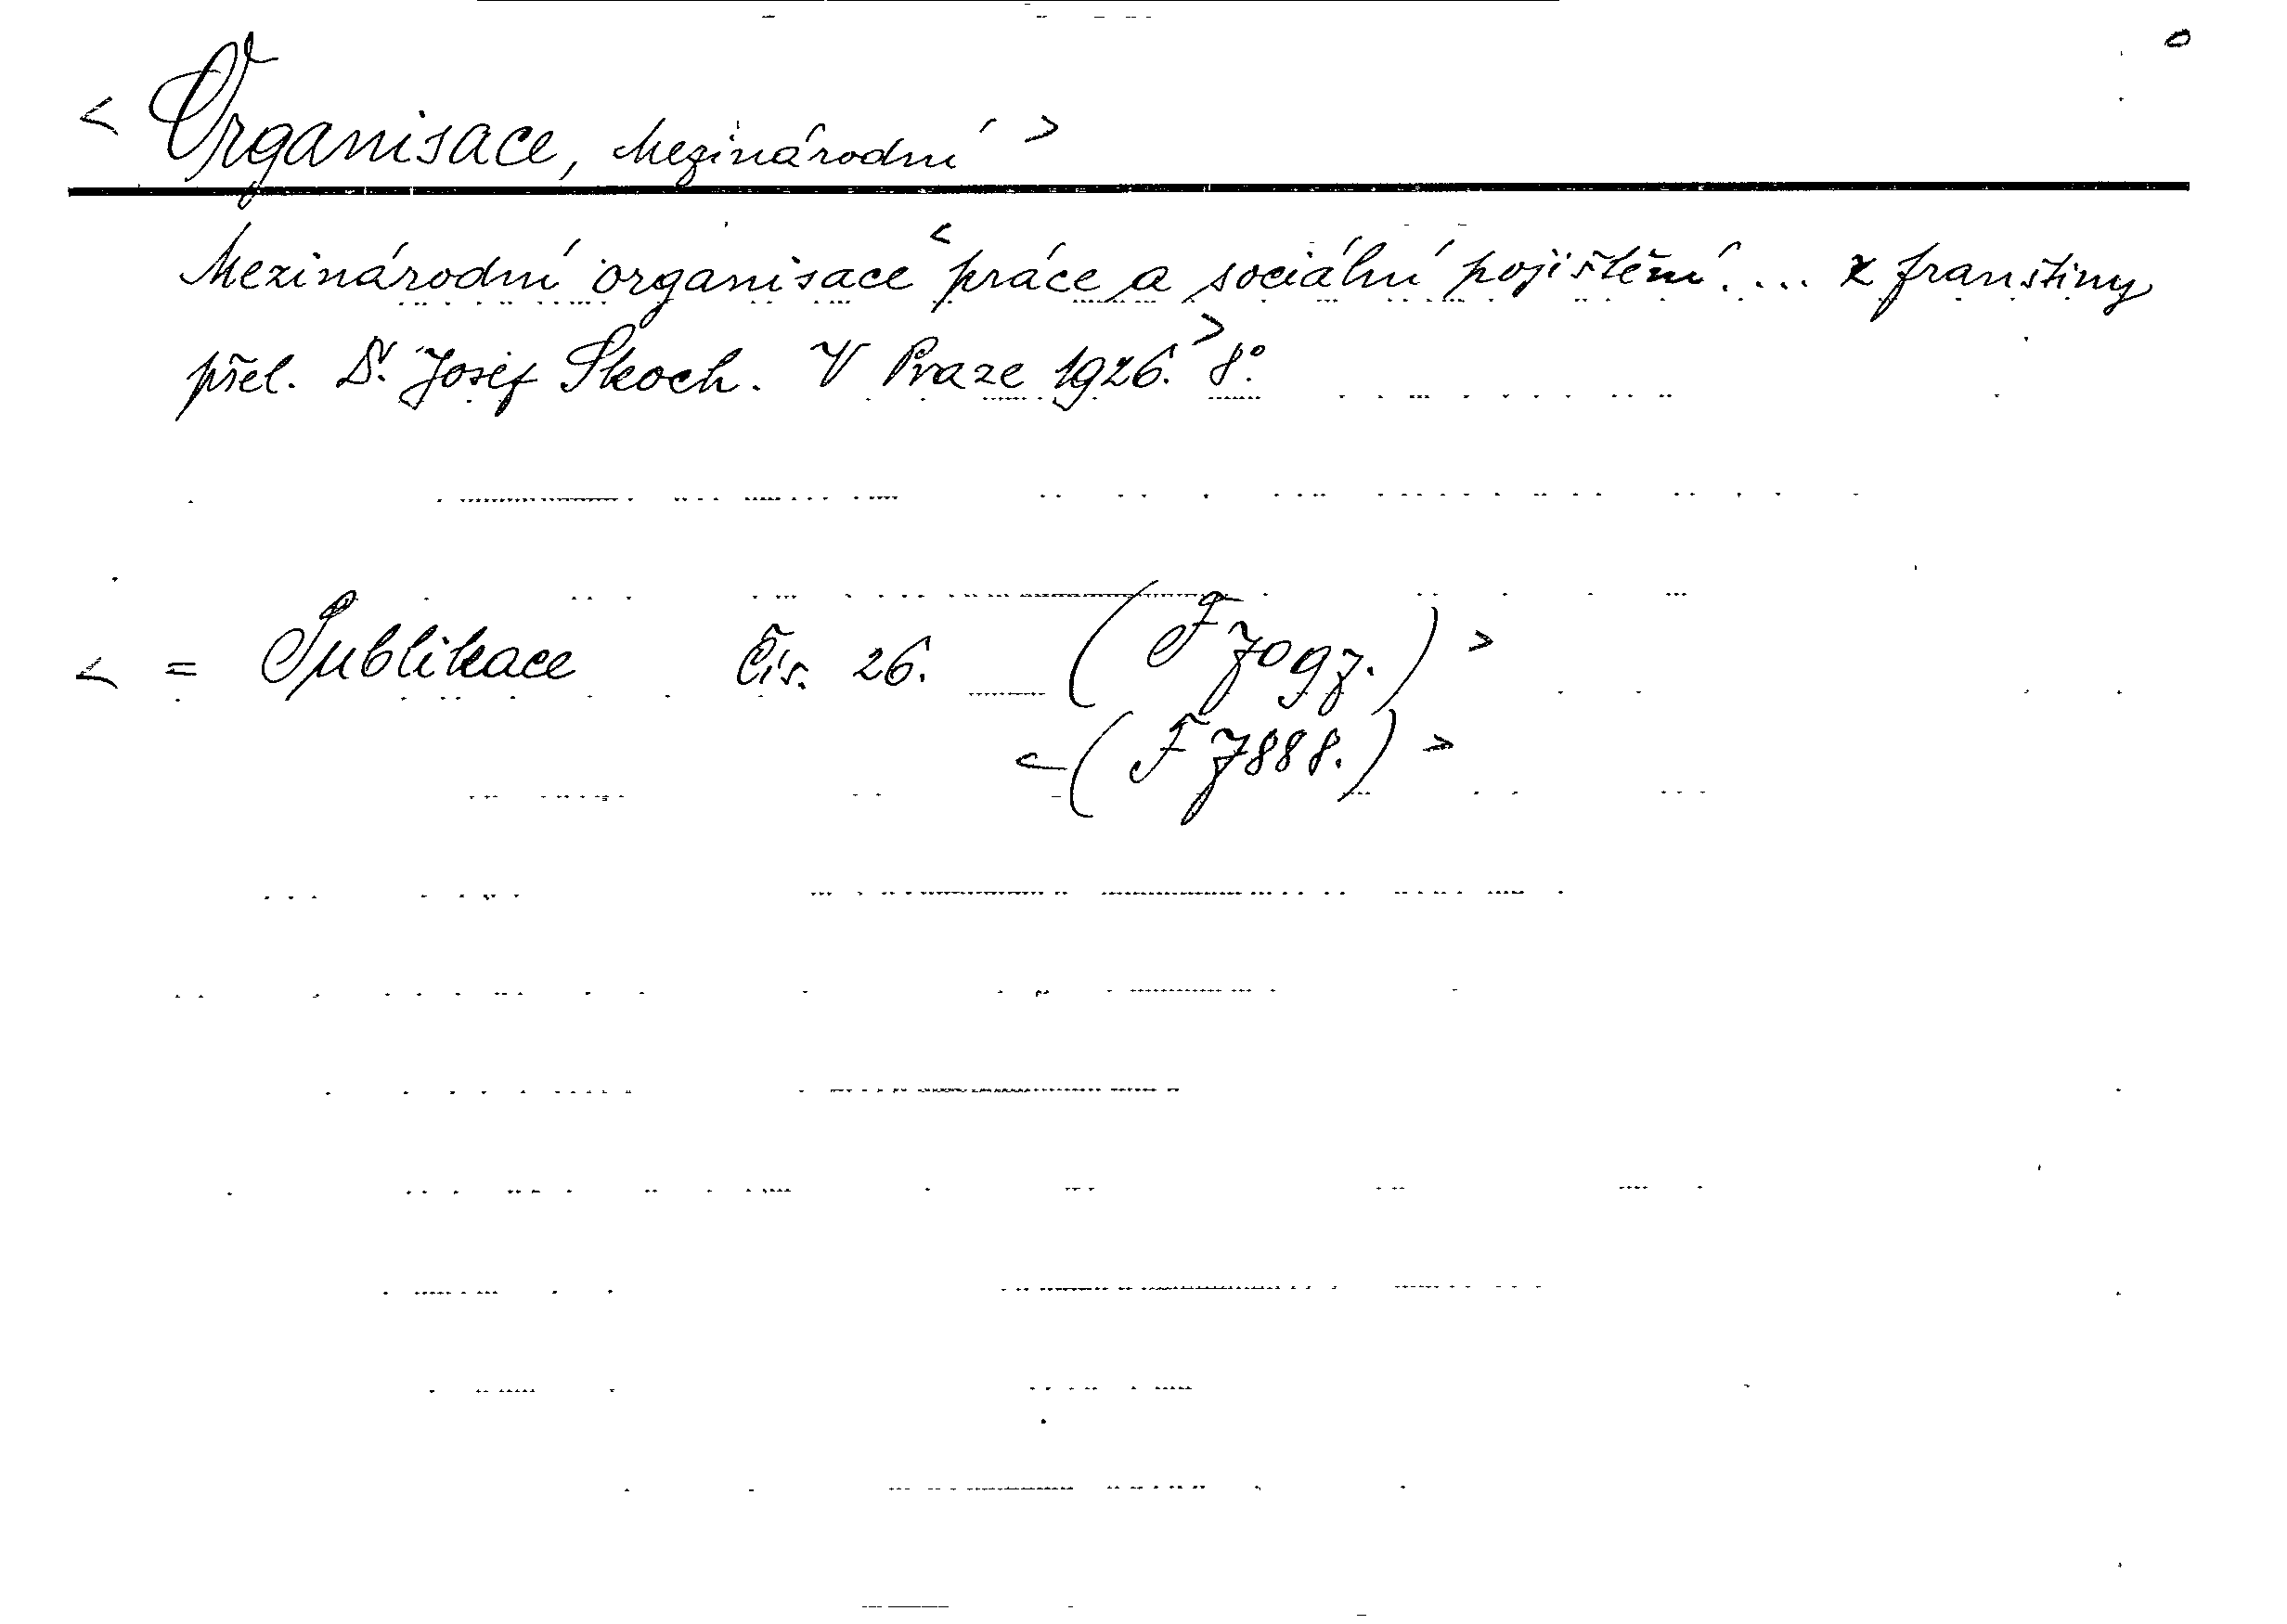 < Organisace, Mezinárodní >
Mezinárodní organisace < práce a sociální pojištění. ... z franštiny
přel. Dr. Josef Skoch. V Praze 1926. > 8°.
< = Publikace Čís. 26. (F 7097.) >
< (F 7888.) >